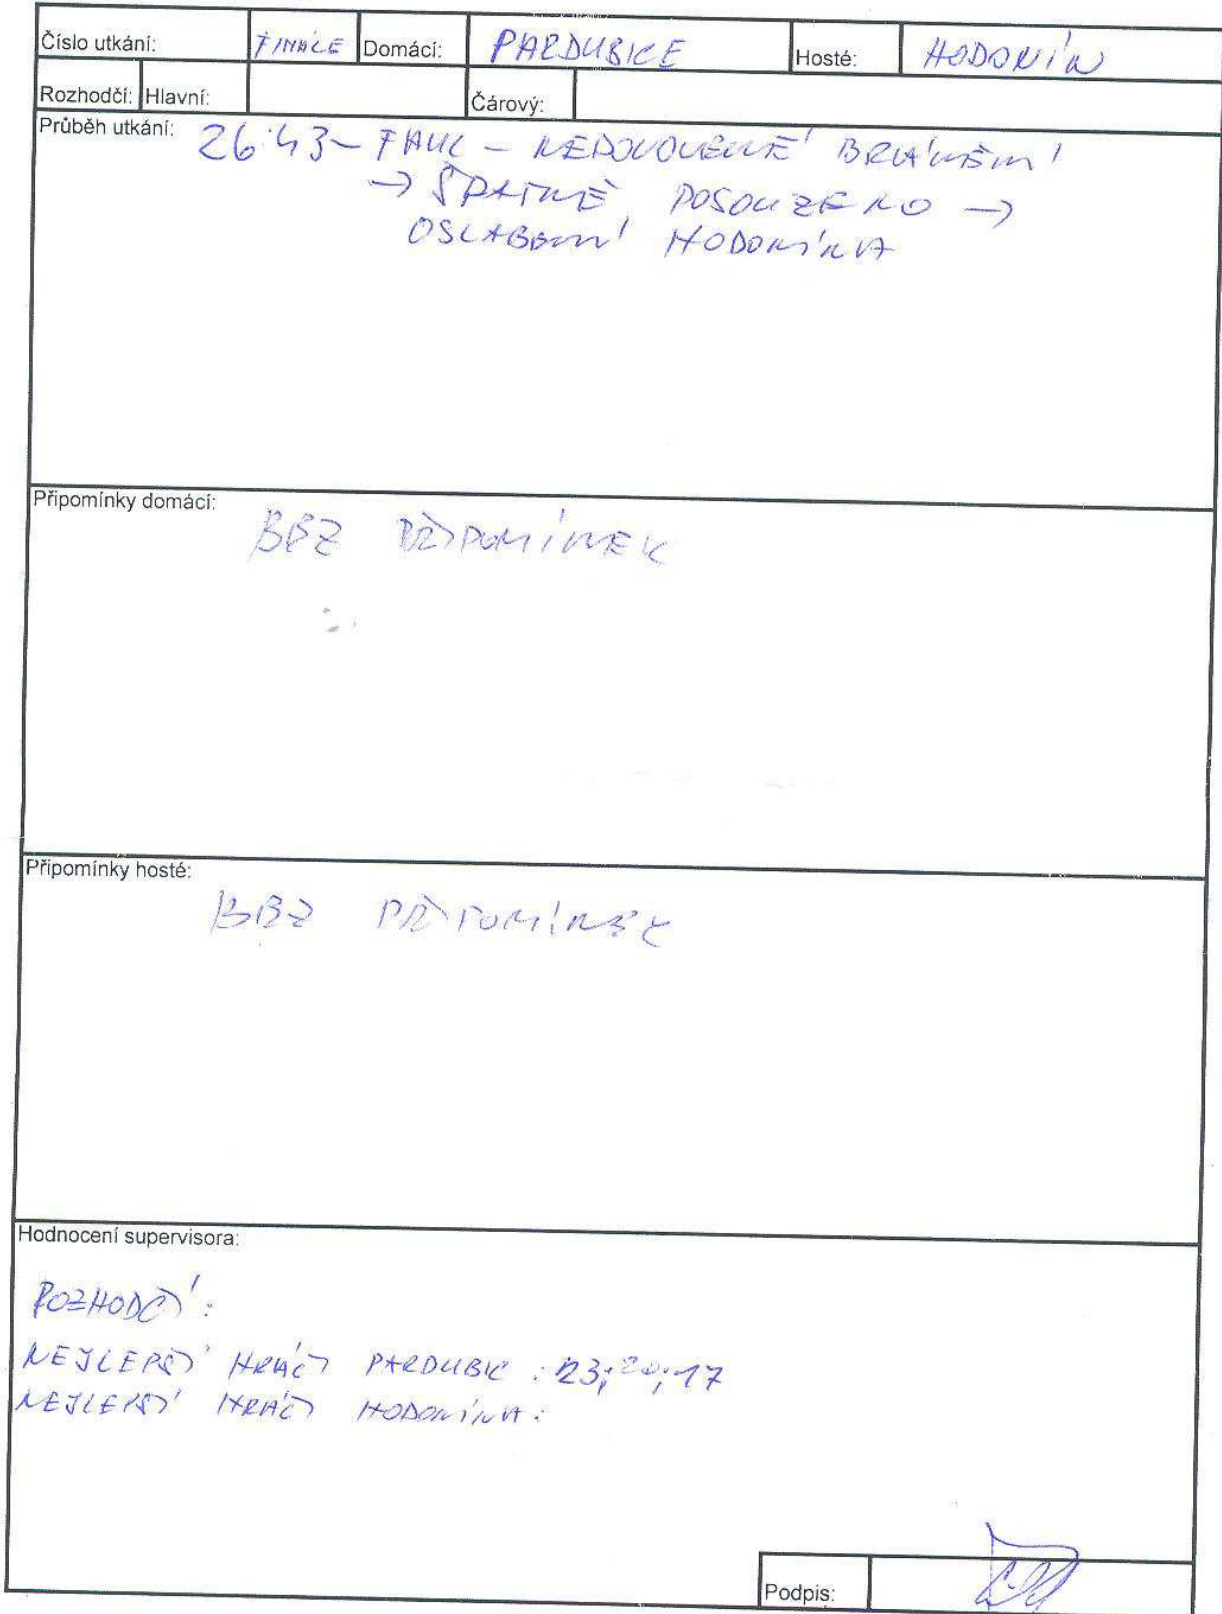 Číslo utkání: FINÁLE Domácí: PARDUBICE Hosté: HODONÍN
Rozhodčí: Hlavní: Čárový:
Průběh utkání: 26:43 - FAUL - NEDOVOLENÉ BRÁNĚNÍ
→ ŠPATNĚ POSOUZENO →
OSLABENÍ HODONÍNA
Připomínky domácí:
BEZ PŘIPOMÍNEK
Připomínky hosté:
BEZ PŘIPOMÍNEK
Hodnocení supervisora:
ROZHODČÍ:
NEJLEPŠÍ HRÁČI PARDUBIC: 23; 20; 17
NEJLEPŠÍ HRÁČI HODONÍNA:
Podpis: